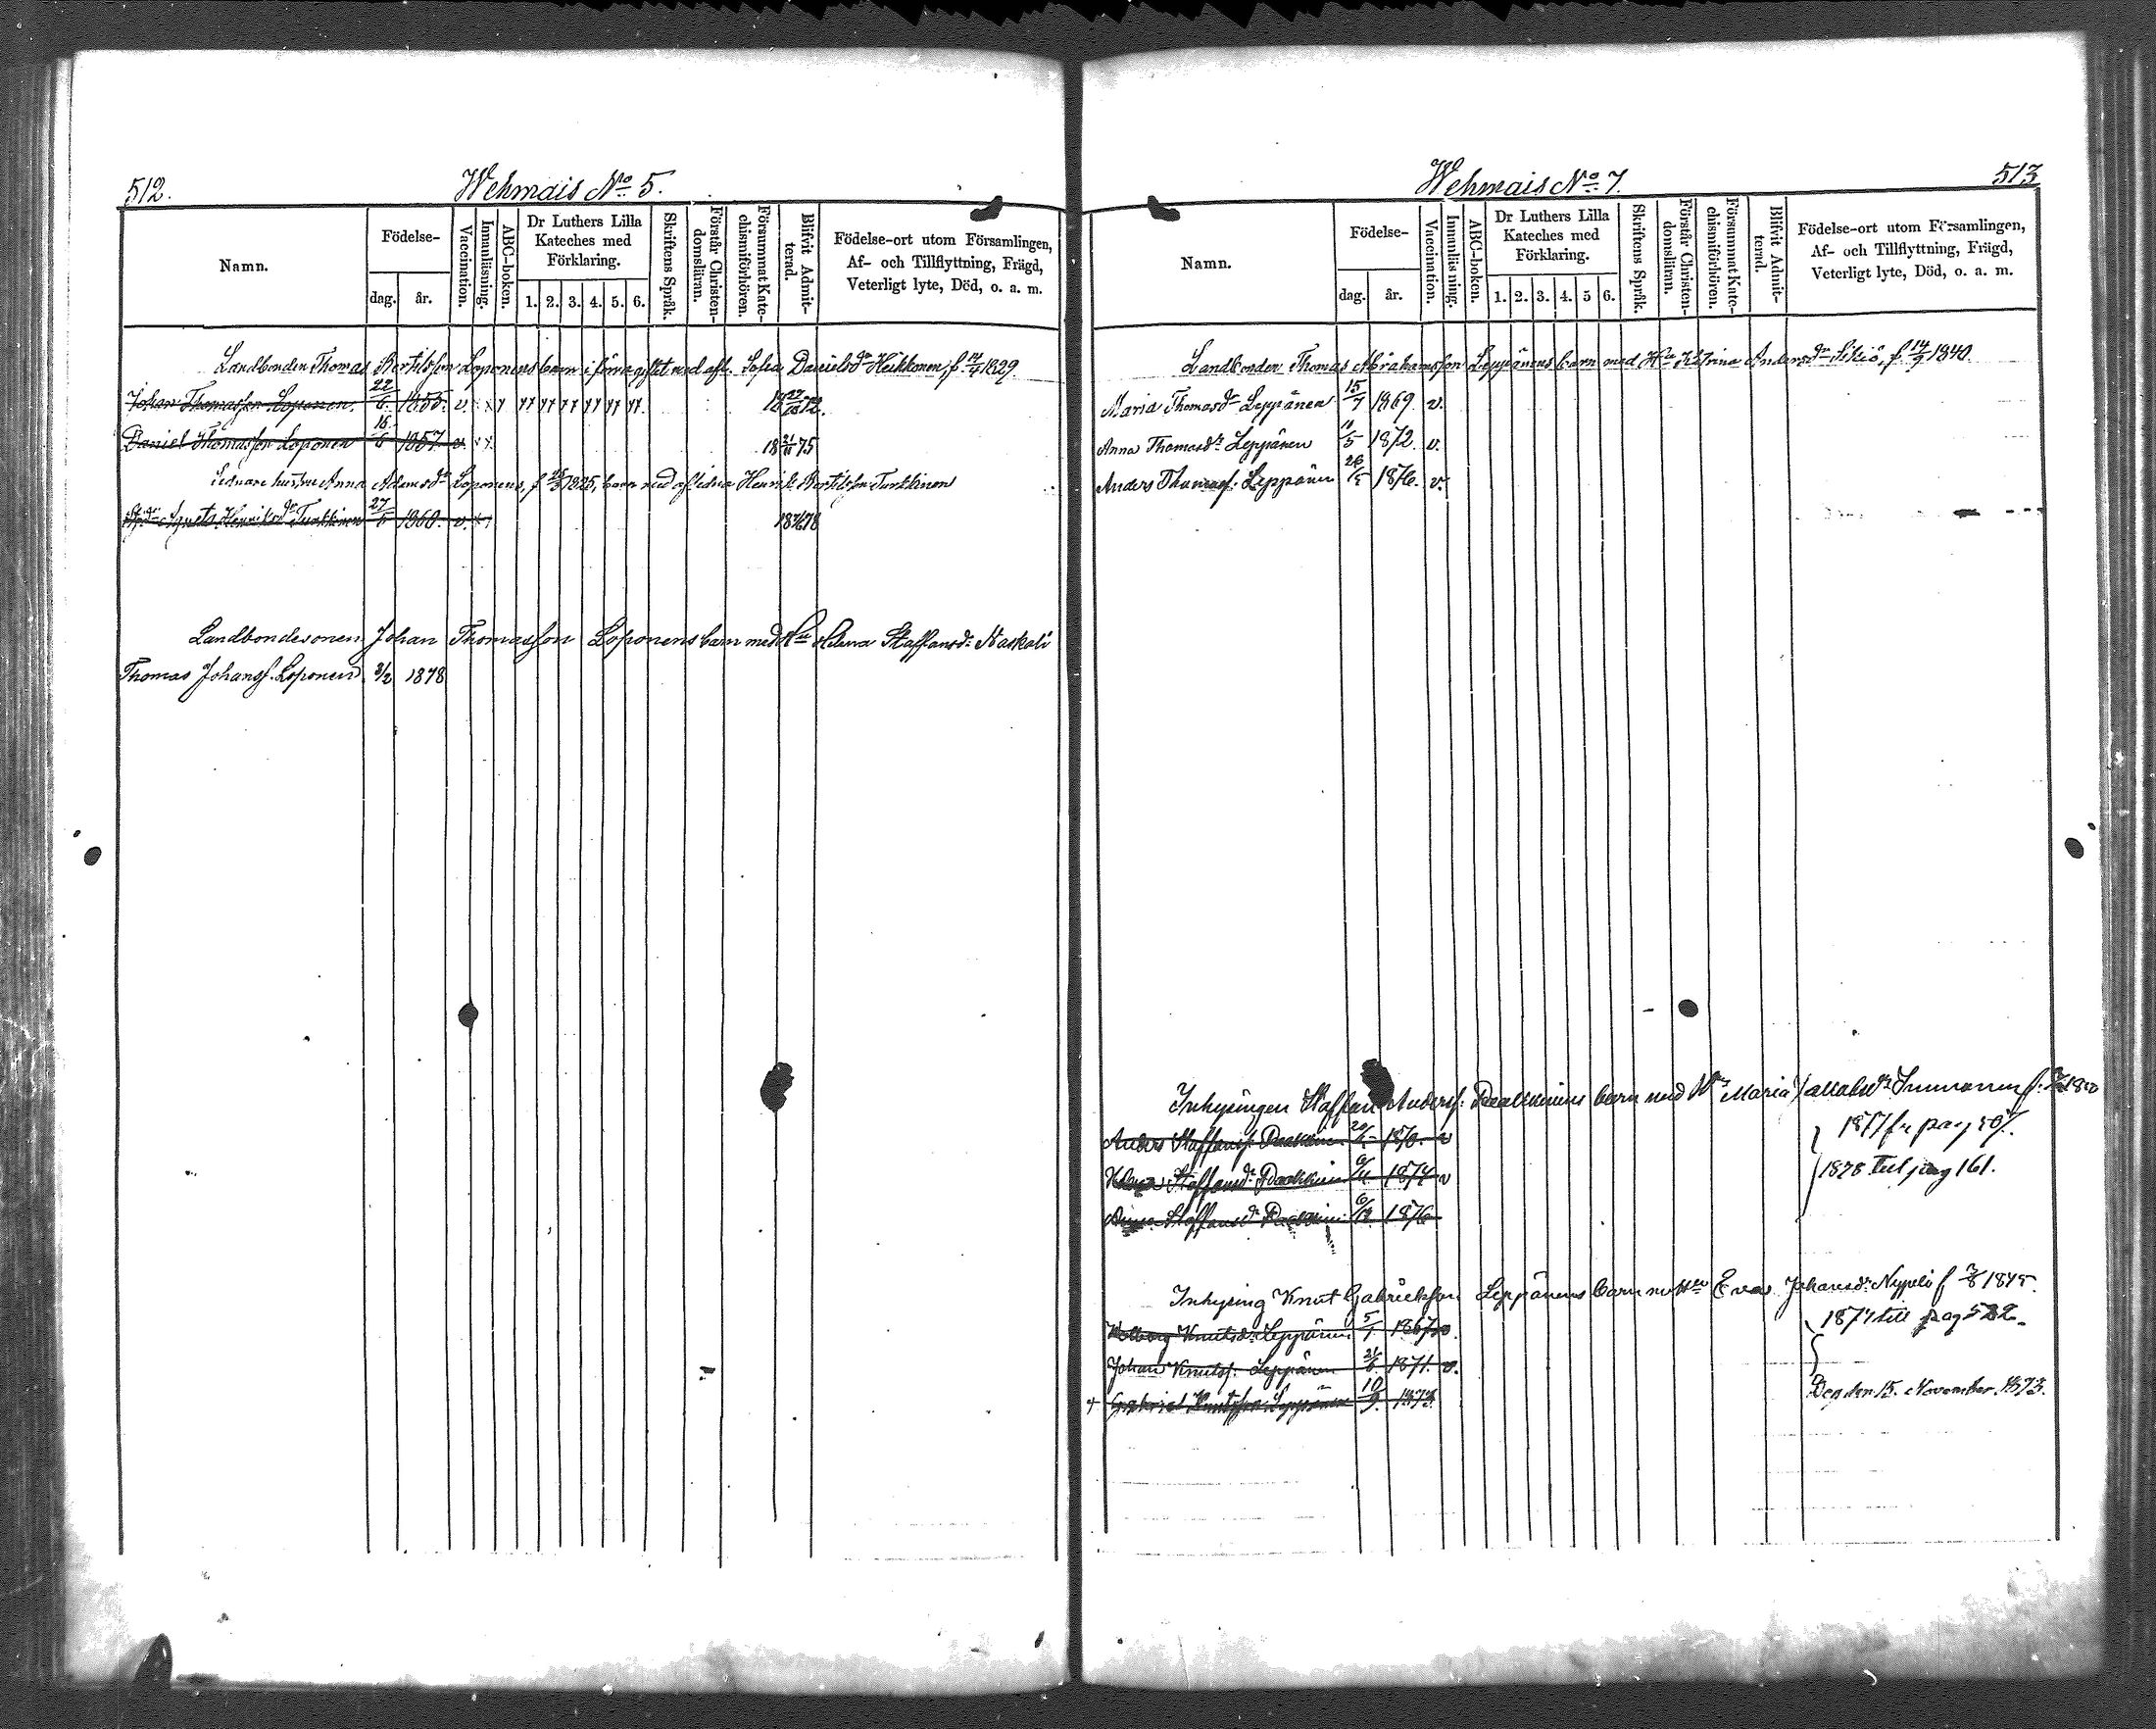 512.
Wehmais No 5.
Namn.
Födelse-
dag.
år.
Vaccination.
Innanläsning.
ABC-boken.
Dr Luthers Lilla Kateches med Förklaring.
1. 2. 3. 4. 5. 6.
Skriftens Språk.
Förstår Christendomsläran.
Försummat Katechismiförhören.
Blifvit Admitterad.
Födelse-ort utom Församlingen,
Af- och Tillflyttning, Frägd,
Veterligt lyte, Död, o. a. m.
Landbonden Thomas Bertilsson Loponens barn i förra giftet med afl. Sofia Danielsdr Heikkonen, f. 1829
Johan Thomasson Loponen 22/6 1855. v
Daniel Thomasson Loponen 16/6 1857 v. 1875
hustru Anna Adamsdr Loponens, f 1825, barn med aflidna Henrik Bertilsson Turkkinen
Agneta Henriksdr Turkkinen 27/6 1860. v. 1878
Landbondesonen Johan Thomasson Loponens barn med Hu Helena Staffansdr Naskali
Thomas Johanss. Loponen 3/2 1878
513
Wehmais No 7.
Namn.
Födelse-
dag.
år.
Vaccination.
Innanläsning.
ABC-boken.
Dr Luthers Lilla Kateches med Förklaring.
1. 2. 3. 4. 5 6.
Skriftens Språk.
Förstår Christendomsläran.
Försummat Katechismiförhören.
Blifvit Admitterad.
Födelse-ort utom Församlingen,
Af- och Tillflyttning, Frägd,
Veterligt lyte, Död, o. a. m.
Landbonden Thomas Abrahamsson Leppänens barn med Hu Katrina Andersdr Sikiö, f. 14/9 1840.
Maria Thomasdr Leppänen 15/7 1869 v.
Anna Thomasdr Leppänen 11/5 1872. v.
Anders Thomass. Leppänen 1876. v.
Inhysingen Staffan Anderss. Paakkinens barn med Hu Maria
Anders Staffanss. Paakkinen 1870. v
1877 fr pag 507.
Staffansdr Paakkinen 1874 v
1878 till pag 161.
Staffansdr Paakkinen 6/12 1876
Inhysing Knut Gabrielsson Leppänens barn m Hu Eva Johansdr Nypelö f 1845.
Walborg Knutsdr Leppänen 5/1 1867 v.
1874 till pag 522.
Johan Knutss. Leppänen 21/6 1871. v.
+ Gabriel Knutsson Leppänen 10/9. 1873
Dog den 15. November 1873.